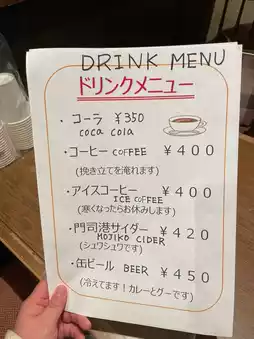 DRINK MENU
ドリンクメニュー
・コーラ ¥350
coca cola
・コーヒー COFFEE ¥400
(挽き立てを淹れます)
・アイスコーヒー ¥400
ICE COFFEE
(寒くなったらお休みします)
・門司港サイダー ¥420
MOJIKO CIDER
(シュワシュワです)
・缶ビール BEER ¥450
(冷えてます!カレーとグーです)